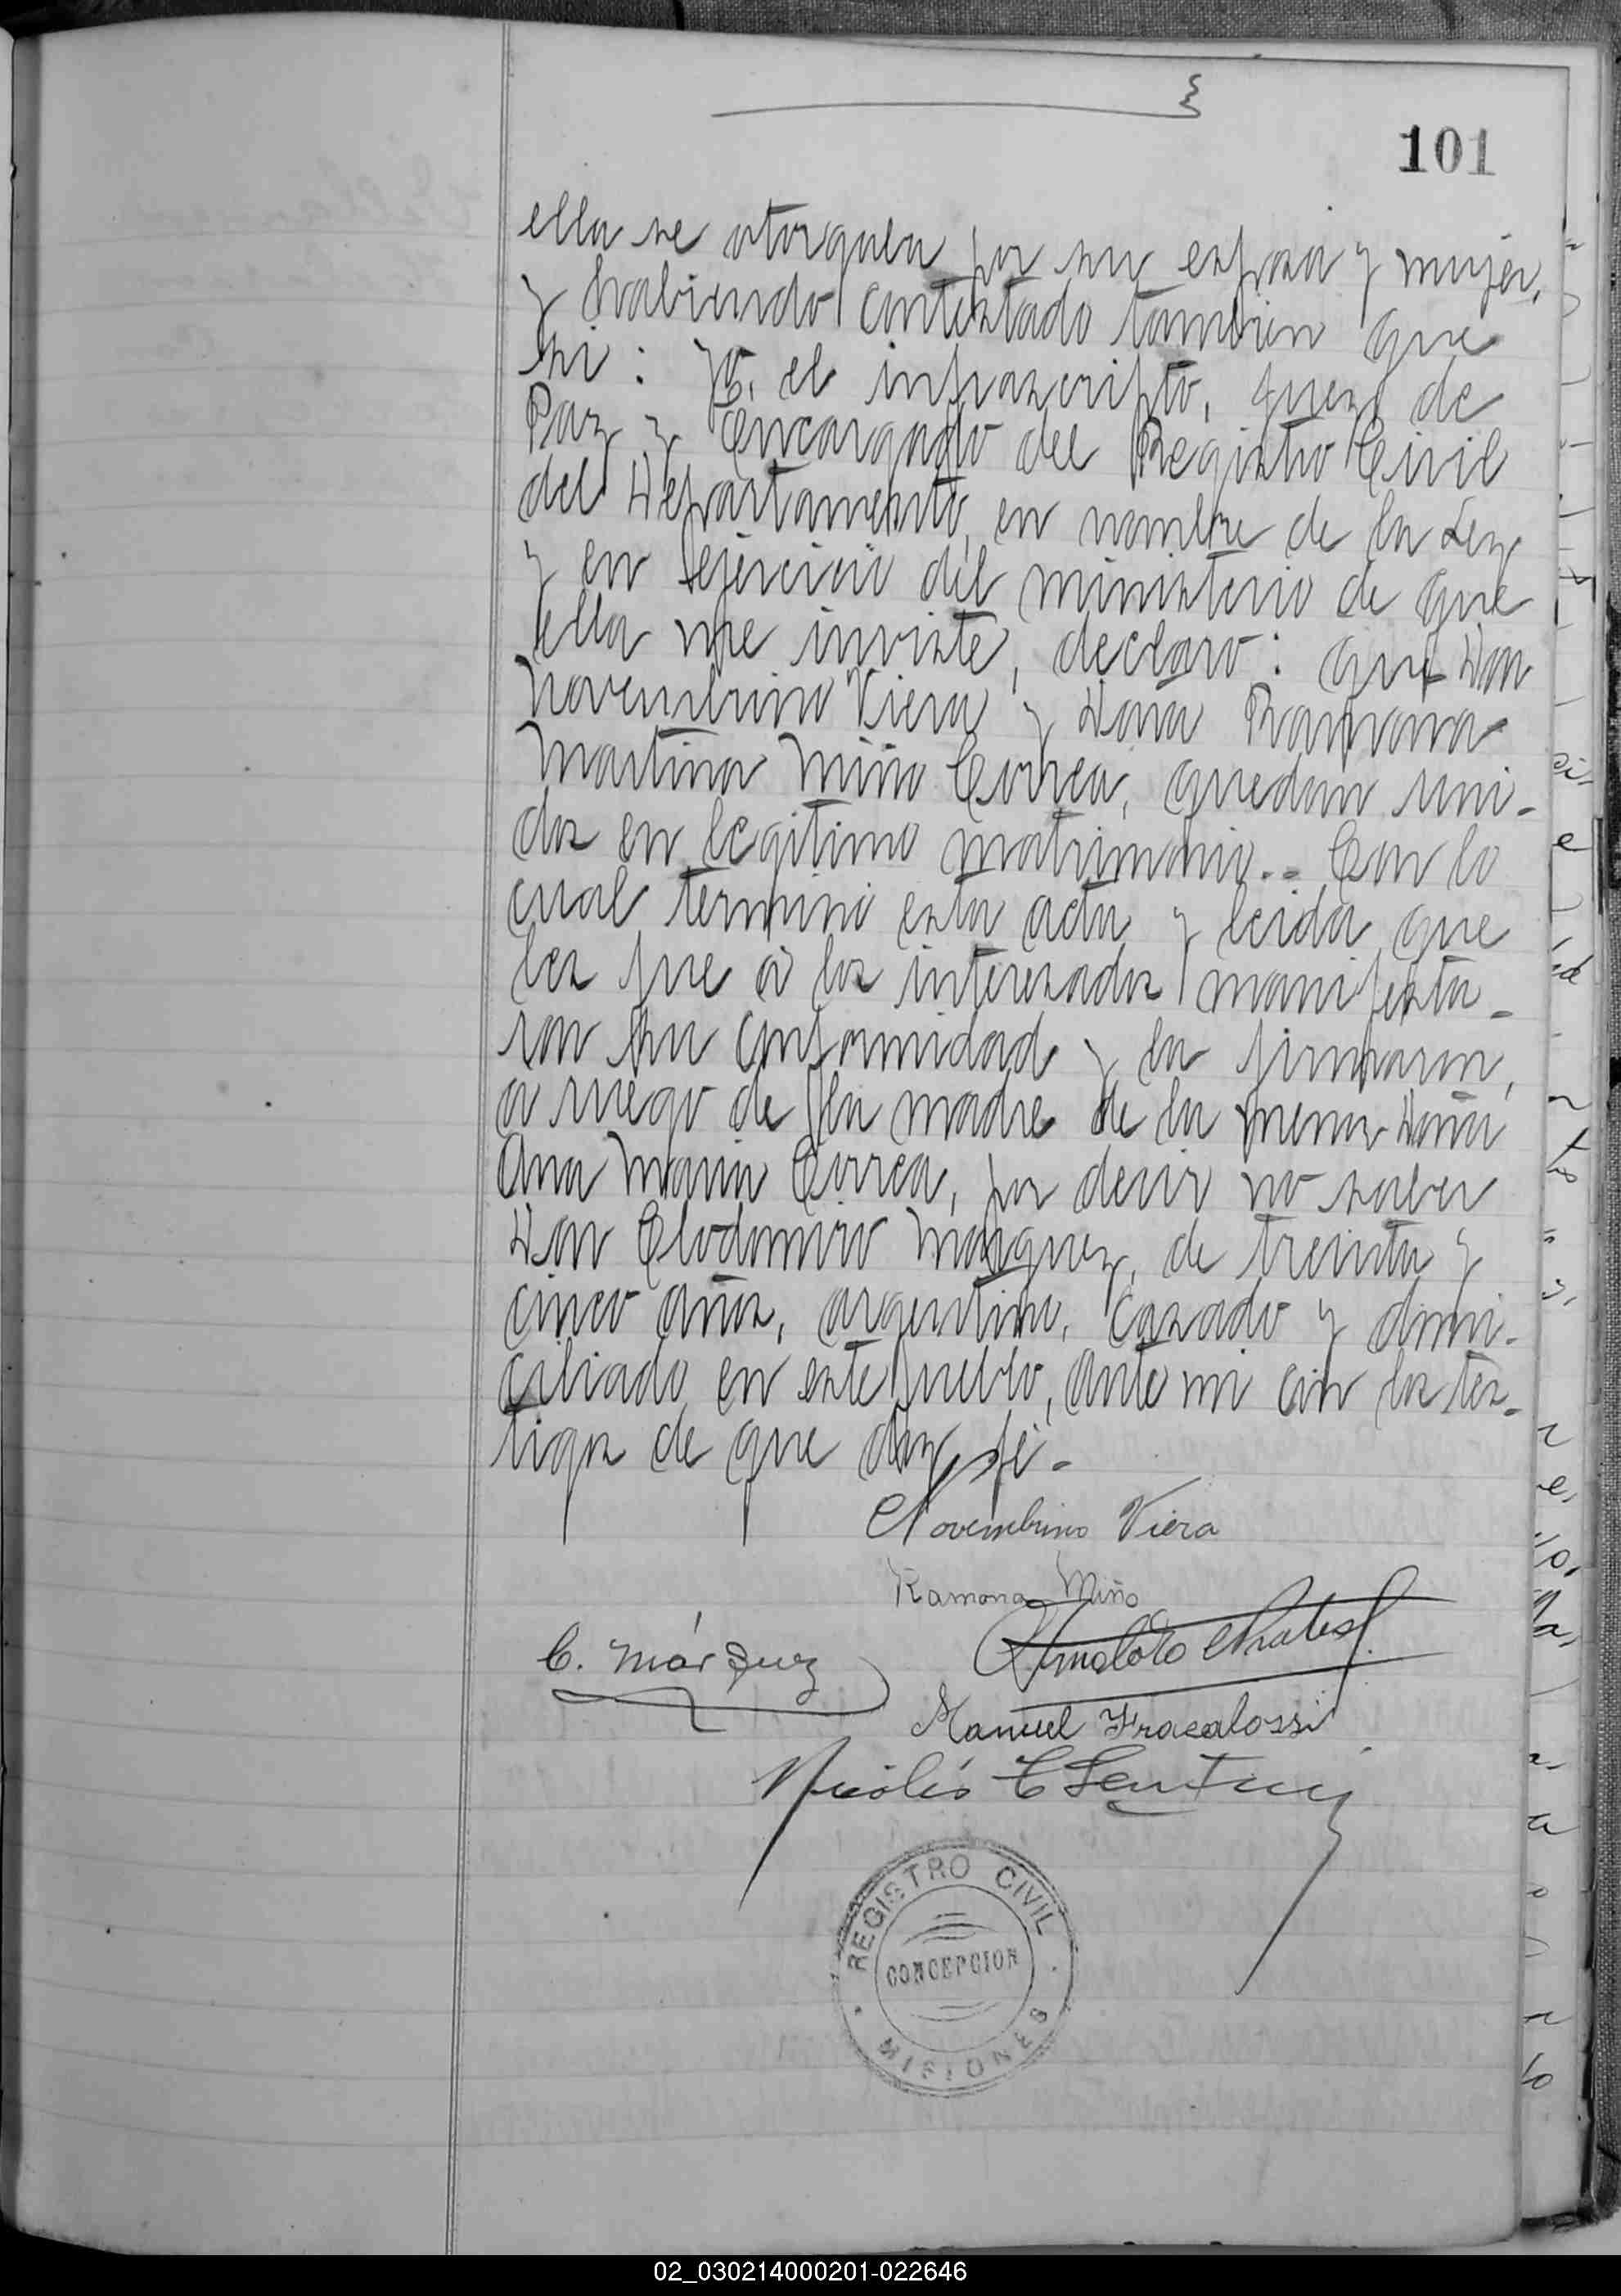 101
ella se otorgaba por su esposa y mujer,
y habiendo contestado tambien que
si: Yo, el infrascripto, Juez de
Paz y Encargado del Registro Civil
del Departamento, en nombre de la Ley
y en ejercicio del ministerio de que
ella me inviste, declaro: que Don
Novembrino Viera y Doña Ramona
Martina Miño Correa, quedan uni-
dos en legitimo matrimonio.- Con lo
cual terminó esta acta y leida que
les fue á los interesados manifesta-
ron su conformidad y la firmaron,
a ruego de la madre de la menor Doña
Ana Maria Correa, por decir no saber
Don Clodomiro Marquez, de treinta y
cinco años, argentino, casado y domi-
ciliado en este pueblo, ante mi con los tes-
tigos de que doy fé.-
Novembrino Viera
Ramona Miño
C. Márquez
Manuel Fracalossi
Nicolás
REGISTRO CIVIL
CONCEPCION
MISIONES
02_030214000201-022646